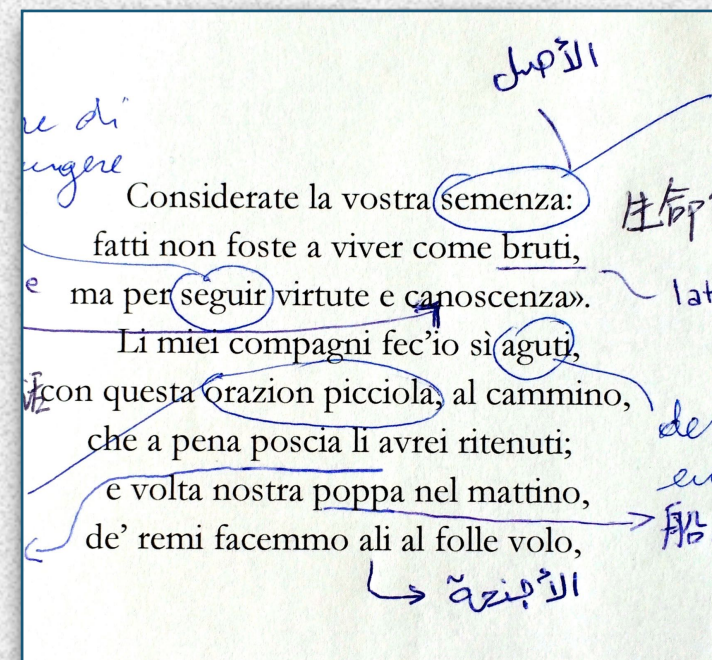 الأصل
re di
ungere
Considerate la vostra semenza:
生命
fatti non foste a viver come bruti,
e
ma per seguir virtute e canoscenza».
lat
Li miei compagni fec'io sì aguti,
con questa orazion picciola, al cammino,
de
che a pena poscia li avrei ritenuti;
e volta nostra poppa nel mattino,
船
de' remi facemmo ali al folle volo,
الأجنحة